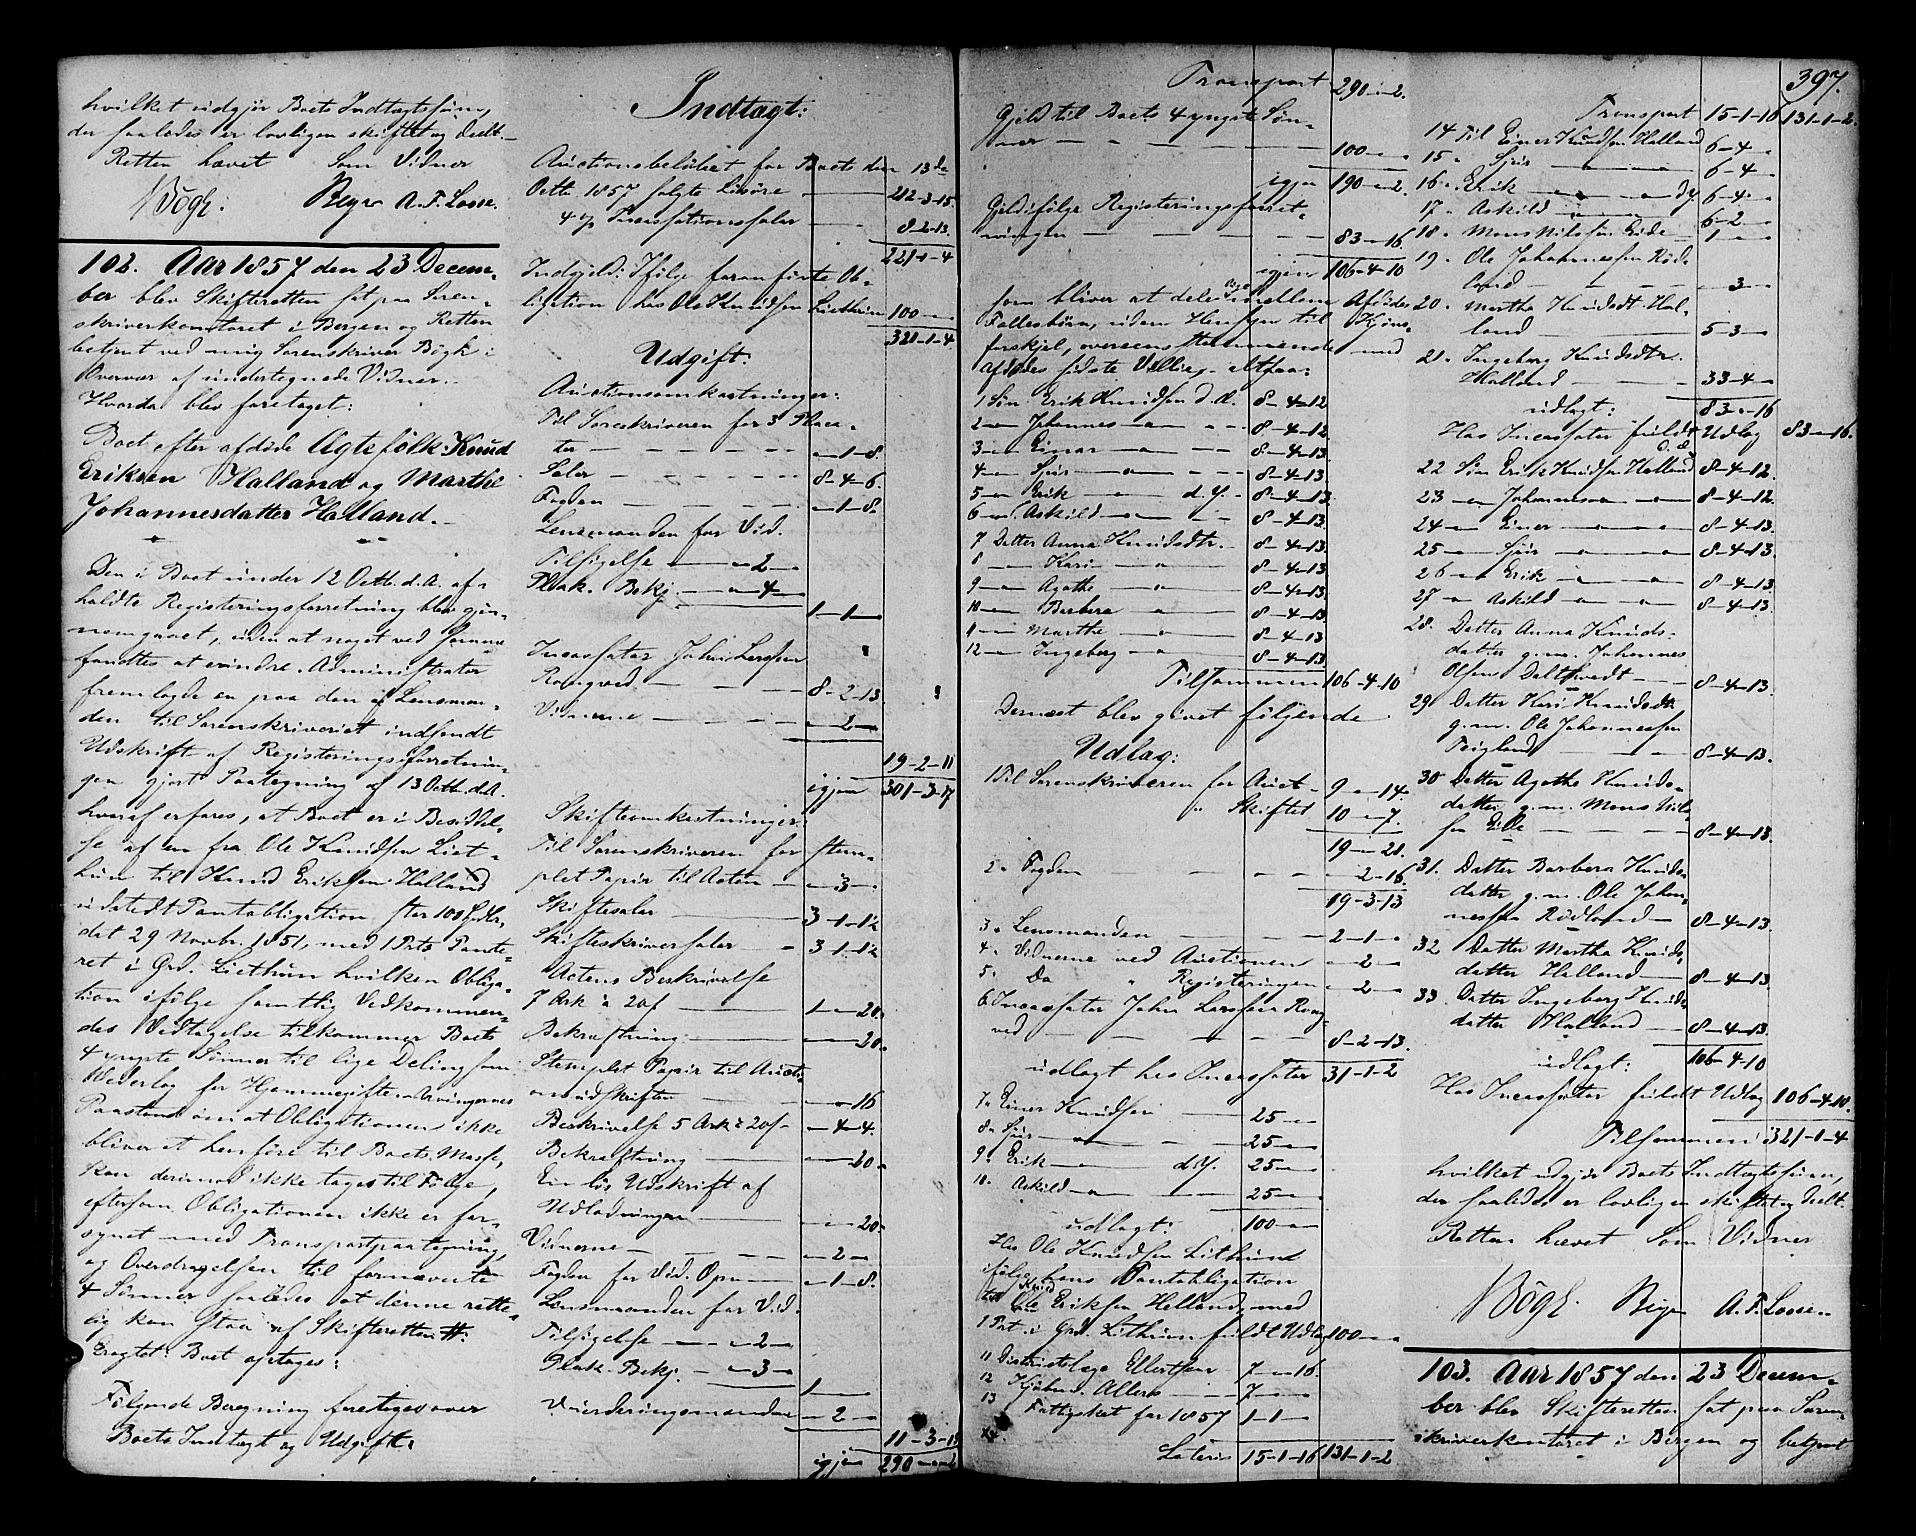 hvilket udgjør Boets Indtægtssum,
der saaledes er lovligen skiftet og deelt.
Retten hævet Som Vidner
Bøgh: Beyer A. F. Losse.
102. Aar 1857 den 23 Decem-
ber blev Skifteretten sat paa Soren-
skriverkontoret i Bergen og Retten
betjent ved mig Sorenskriver Bøgh i
Overvær af undertegnede Vidner.
Hvorda blev foretaget:
Boet efter afdøde Ægtefolk Knud
Eriksen Halland og Marthe
Johannesdatter Halland.
Den i Boet under 12 Octb. d.A. af-
holdte Registeringsforretning blev gjen-
nemgaaet, uden at noget ved samme
fandtes at erindre. Administrator
fremlagde en paa den af Lensman-
den til Sorenskriveriet indsendt
Udskrift af Registeringsforretnin-
gen gjort Paategning af 13 Octb. d.A.
hvoraf erfares, at Boet er i Besiddel-
se af en fra Ole Knudsen Liet-
hun til Knud Eriksen Halland
udstedt Pantobligation stor 100 Spdlr.
dat 29 Novbr. 1851, med 1 Prts Pante-
ret i Grd. Liethun hvilken Obliga-
tion ifølge samtlig Vedkommen-
des Vedtagelse tilkommer Boets
4 yngste Sønner til lige Deling som
Vederlag for Hjemmegiften. Arvingernes
Paastand om at Obligationen ikke
bliver at henføre til Boets Masse,
kan derimod ikke tages til Følge,
eftersom Obligationen ikke er for-
synet med Transportpaategning,
og Overdragelsen til fornævnte
4 Sønner saaledes at denne rette-
lig kan staa af Skifteretten #:
Eragtet: Boet optages:
Følgende Beregning foretages over
Boets Indtægt og Udgift:
Indtægt:
Auctionsbeløbet for Boets den 13de
Octb. 1857 solgte Løsøre — 212-3-15.
4 p Incassationssaler — 8-2-13.
221-1-4
Indgjeld: Ifølge foranførte Ob-
ligation hos Ole Knudsen Liethun 100 — —
321-1-4.
Udgift:
Auctionsomkostninger:
Til Sorenskriveren for 3 Placa-
ter — — — — — 1-8.
Saler — — — — 8-4-6.
Fogden — — — — 1-8.
Lensmanden for Vid.
Tilsigelse — — 2 —
Plak. Bekj. — — 4 —
1-1 —
Incassator John Larssen
Rongved — — — 8-2-13
Vidnerne — — — 2 —
19-2-11
igjen 301-3-17
Skifteomkostninger:
Til Sorenskriveren for stem-
plet Papir til Acten — — 3 —
Skiftesaler — 3-1-12
Skifteskriversaler — 3-1-12
Actens Beskrivelse
7 Ark à 20s — 1 — 20.
Bekræftning — — 20.
Stemplet Papir til Aucti-
onsudskriften — — 16
Beskrivelse 5 Ark à 20s — 4-4.
Bekræftning — — 20.
En løs Udskrift af
Udlodningen — — 20.
Vidnerne — — — 2 —
Fogden for Vid. Opn — 1-8.
Lensmanden for Vid.
Tilsigelse — — 2 —
Plak. Bekj. — — 3 —
1 — —
Vurderingsmændene — 2 —
11-3-15
igjen 290 — 2
Transport 290 — 2.
Gjeld til Boets 4 yngste Søn-
ner — — — — 100 — —
igjen 190 — 2.
Gjeld ifølge Registeringsforret-
ningen — — — 83 — 16.
igjen 106-4-10
som bliver at dele imellem Afdødes
Fællesbørn, uden Hensyn til Kjøns-
forskjel, overeensstemmende med
Afdødes sidste Villie, altsaa:
1 Søn Erik Knudsen d. Æ. 8-4-12
2 — Johannes — — 8-4-12.
3 — Einar — — 8-4-13.
4 — Sjur — — 8-4-13.
5 — Erik — d. Y. — 8-4-13.
6 — Askild — — 8-4-13.
7 Datter Anna Knudsdtr. — 8-4-13.
8 — Kari — 8-4-13.
9 — Agathe — 8-4-13.
10 — Barbera — 8-4-13
11 — Marthe — 8-4-13
12 — Ingeborg — 8-4-13
Tilsammen 106-4-10
Dernæst blev givet følgende
Udlæg:
1 Til Sorenskriveren for Auct — 9 — 14.
" Skiftet 10 — 7.
19 — 21.
2 " Fogden — — — 2-16.
19-3-13
3 " Lensmanden — — — 2-1 —
4 " Vidnerne ved Auctionen — 2 —
5 " Do " Registeringen — 2 —
6 " Incassator John Larssen Rong-
ved — — — 8-2-13.
udlagt hos Incassator 31-1-2
7 " Einer Knudsen — 25 — —
8 " Sjur — — 25 — —
9 " Erik — d. Y. 25 — —
10 " Askild — — 25 — —
udlagt: 100 — —
Hos Ole Knudsen Lithun
ifølge hans Pantobligation
til Knud Eriksen Helland, med
1 Prt. i Grd. Lithun fuldt Udlæg 100 — —
11 Districtslæge Ellertsen 7 — 16.
12 Kjøbmd. Allers — — 7 — —
13 Fattigskat for 1857 1-1 —
Lateris 15-1-16 131-1-2
397.
Transport 15-1-16 131-1-2.
14 Til Einer Knudsen Halland 6-4 —
15 " Sjur — — 6-4 —
16 " Erik — — d. Y. 6-4 —
17 " Askild — — 6-2 —
18 " Mons Nilssen Eide — 1 — —
19 " Ole Johannessen Rød-
land — — — 3 —
20 " Martha Knudsdt. Hal-
land — — 5-3 —
21 " Ingeborg Knudsdtr.
Halland — — 33-4 —
udlagt: 83 — 16
Hos Incassator fuldt Udlæg 83 — 16.
22 Søn Erik Knudsen Halland d. Æ. 8-4-12.
23 — Johannes — — 8-4-12.
24 — Einer — — 8-4-13.
25 — Sjur — — 8-4-13.
26 — Erik — — 8-4-13.
27 — Askild — — 8-4-13.
28. Datter Anna Knuds-
datter g. m. Johannes
Olsen Daltvedt — 8-4-13.
29 Datter Kari Knudsdt.
g. m. Ole Johannessen
Teigland — 8-4-13.
30 Datter Agathe Knuds-
datter g. m. Mons Nil-
sen Eide — — 8-4-13.
31. Datter Barbera Knuds-
datter g. m. Ole Johan-
nessen Rødland — 8-4-13.
32 Datter Martha Knuds-
datter Helland — 8-4-13.
33. Datter Ingeborg Knuds-
datter Halland — 8-4-13.
udlagt: 106-4-10
Hos Incassator fuldt Udlæg 106-4-10.
Tilsammen 321-1-4
hvilket udgjør Boets Indtægtssum,
der saaledes er lovligen skiftet og deelt.
Retten hævet Som Vidner
Bøgh. Beyer A. F. Losse.
103. Aar 1857 den 23 Decem-
ber blev Skifteretten sat paa Soren-
skriverkontoret i Bergen og betjent